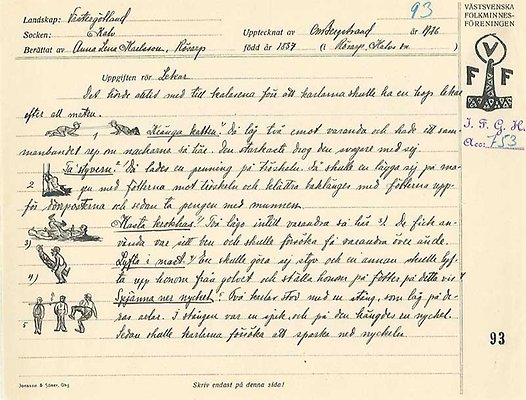 93
Landskap: Västergötland
Socken: Kalv
Upptecknat av
år 1926
Berättat av Anna Lena Karlsson, Rörarp
född år 1837 (i Rörarp, Kalvs sn)
VÄSTSVENSKA
FOLKMINNES-
FÖRENINGEN
V
F F
I. F. G. H.
Acc: 753
Uppgiften rör Lekar
Det hörde alltid med till kalasena förr att karlarna skulle ha en hop lekar
efter all maten.
1 "Hänga katten". Då låg två emot varandra och hade ett sam-
manbundet rep om nackarna så här. Den starkaste drog den svagare med sig
"Ta styvern". Då lades en penning på tröskeln. Så skulle en lägga sig på ma-
2 gen med fötterna mot tröskeln och klättra baklänges med fötterna upp-
för dörrposterna och sedan ta pengen med munnen.
Kasta krokhas. Två lågo intill varandra så här 3). De fick an-
3) vända var sitt ben och skulle försöka få varandra över ände.
Lyfta i mast. 4) En skulle göra sig styv och en annan skulle lyf-
4) ta upp honom från golvet och ställa honom på fötter på detta vis 4
Spänna ner nyckel. Två karlar stod med en stång, som låg på de-
5 ras axlar. I stången var en spik och på den hängdes en nyckel.
Sedan skulle karlarna försöka att sparka ned nyckeln.
93
Skriv endast på denna sida!